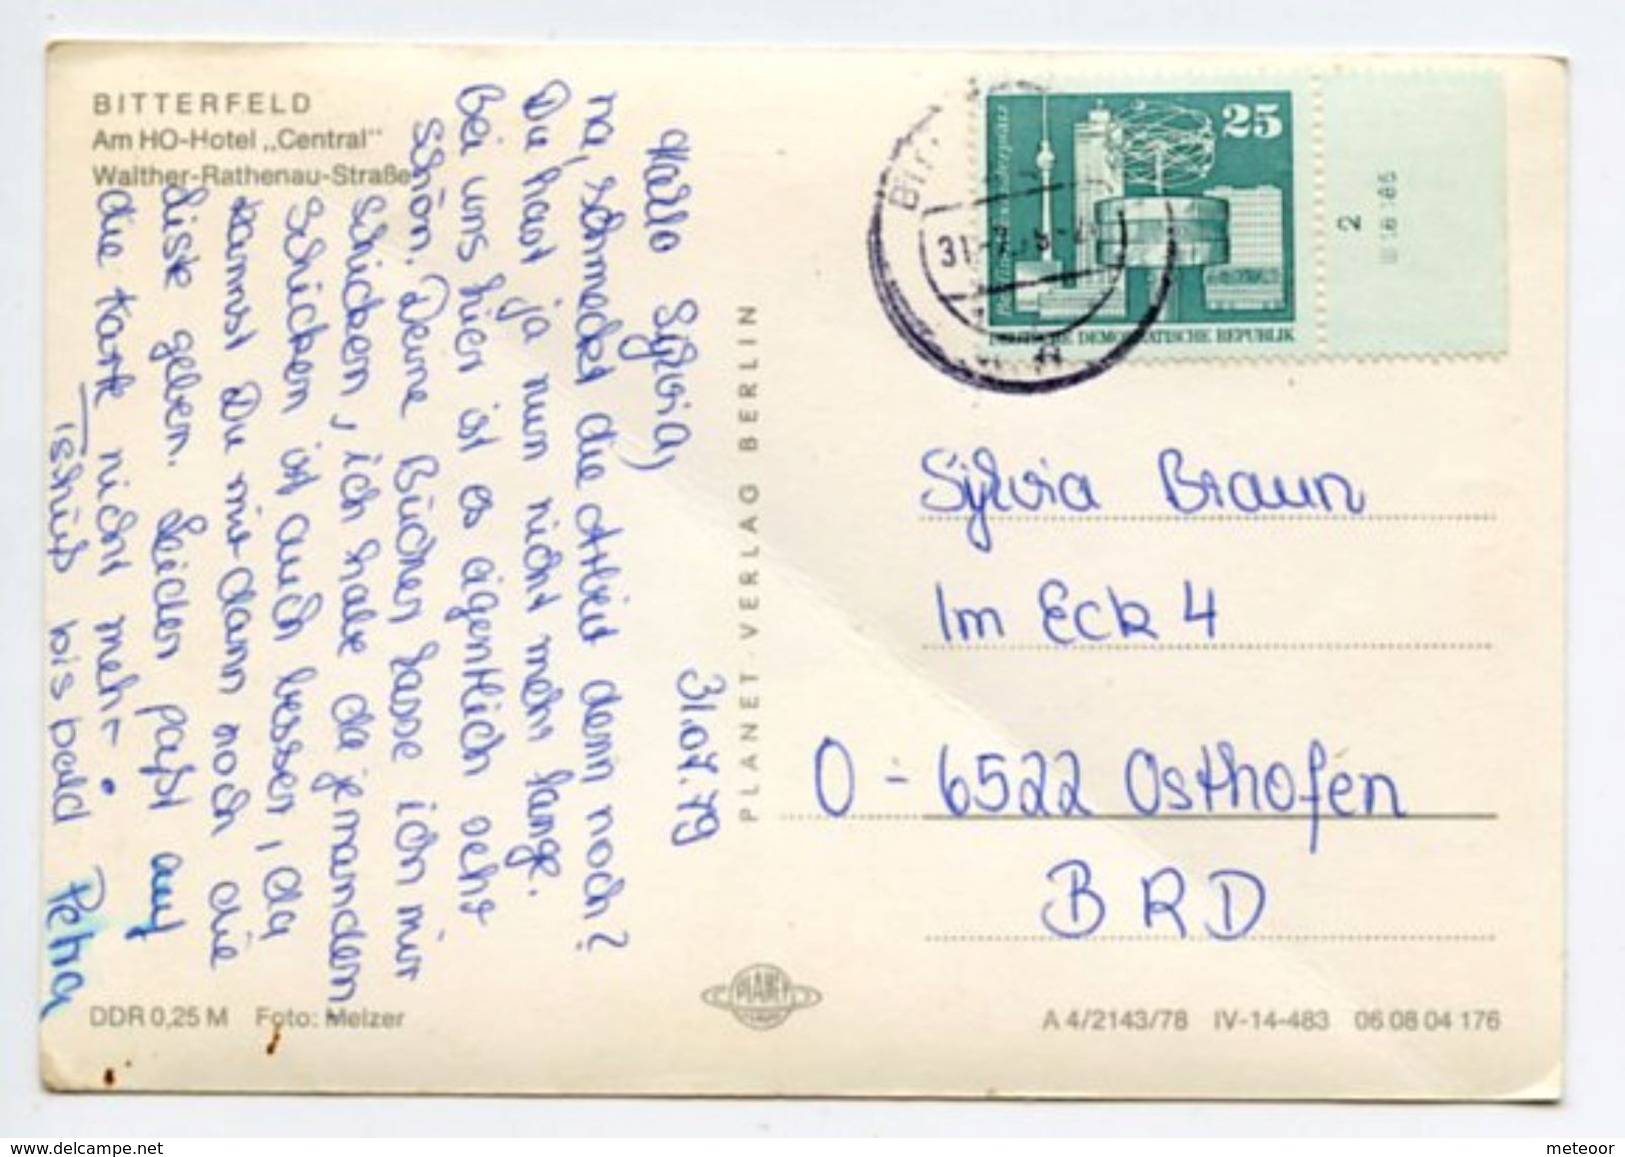 BITTERFELD
Am HO-Hotel „Central“
Walther-Rathenau-Straße
Hallo Sylvia,
31.07.79
na, schmeckt die Arbeit denn noch?
Du hast ja nun nicht mehr lange.
Bei uns hier ist es eigentlich sehr
schön. Deine Bücher lasse ich mir
schicken, ich habe da jemanden
schicken ist auch besser, da
kannst Du mir dann noch die
Liste geben. Leider paßt auf
die Karte nicht mehr.
Tschüß bis bald Petra
PLANET-VERLAG BERLIN
25
DEUTSCHE DEMOKRATISCHE REPUBLIK
2
Sylvia Braun
Im Eck 4
O - 6522 Osthofen
BRD
DDR 0,25 M Foto: Melzer
PLANET
A 4/2143/78 IV-14-483 06 08 04 176
meteoor